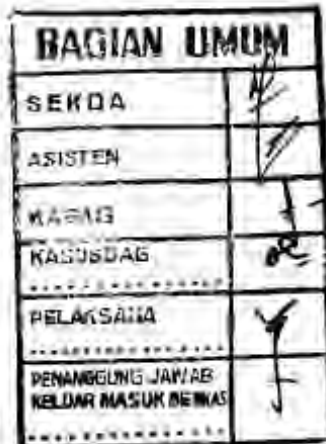 BAGIAN UMUM
SEKDA
ASISTEN
KABAG
KASUBBAG
..................
PELAKSANA
..................
PENANGGUNG JAWAB
KELUAR MASUK BERKAS
..................